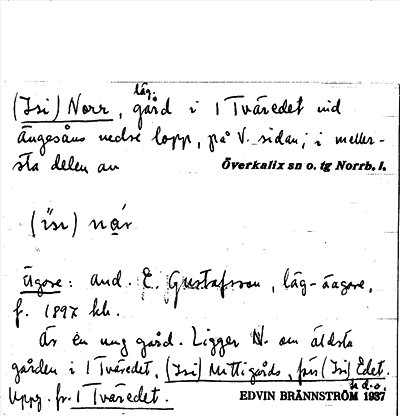 läg.
(Isi) Norr, gård i 1 Tväredet vid
Ängesåns nedre lopp, på V. sidan; i meller-
sta delen av Överkalix sn o. tg Norrb. l.
(i̋si) nạ́r
Ägare: and. E. Gustafsson, läg-äagare,
f. 1897 kh.
Är en ung gård. Ligger N. om äldsta
gården i 1 Tväredet, (Isi) Mittigårds, från (Isi) Edet.
Uppg. fr. 1 Tväredet. s.d.o.
EDVIN BRÄNNSTRÖM 1937